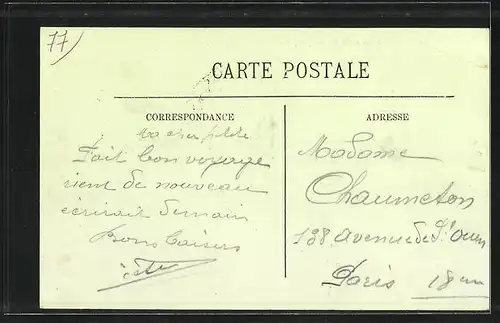 77
CARTE POSTALE
CORRESPONDANCE
ADRESSE
Ma cher petite
Fait bon voyage
rient de nouveau
écrirait demain
Bons baisers
Madame
Chaumeton
138 avenue de St Ouen
Paris 18em